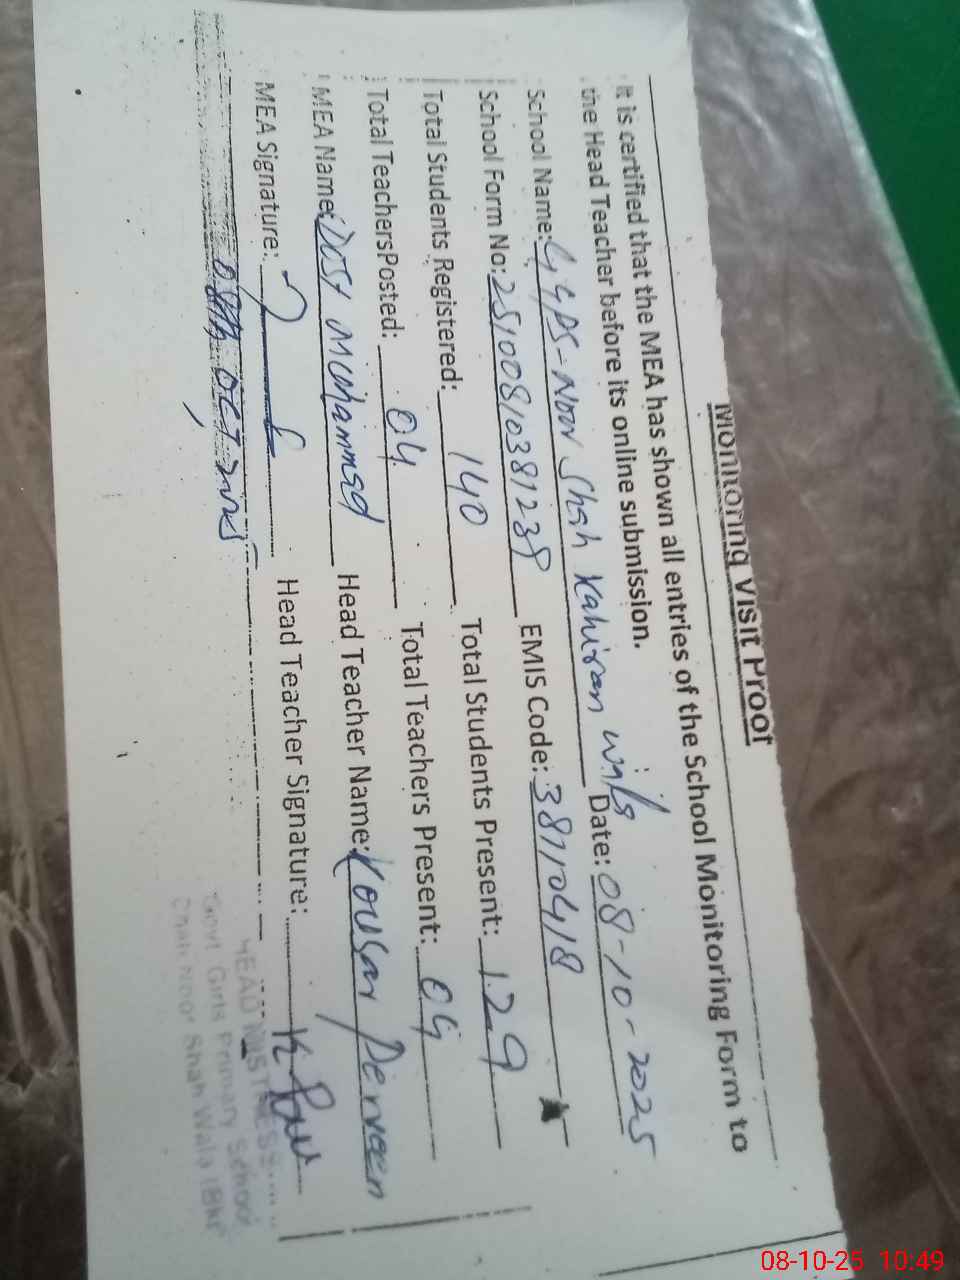 Monitoring Visit Proof
It is certified that the MEA has shown all entries of the School Monitoring Form to
the Head Teacher before its online submission.
School Name: GGPS-Noor Shah Kahiran wala Date: 08-10-2025
School Form No: 25100810381239 EMIS Code: 38110418
Total Students Registered: 140 Total Students Present: 129
Total TeachersPosted: 04 Total Teachers Present: 04
MEA Name: Dost Muhammad Head Teacher Name: Kousar Perveen
MEA Signature: Head Teacher Signature:
08th Oct 2025
HEAD MISTRESS
Govt Girls Primary School
Chah Noor Shah Wala
08-10-25 10:49